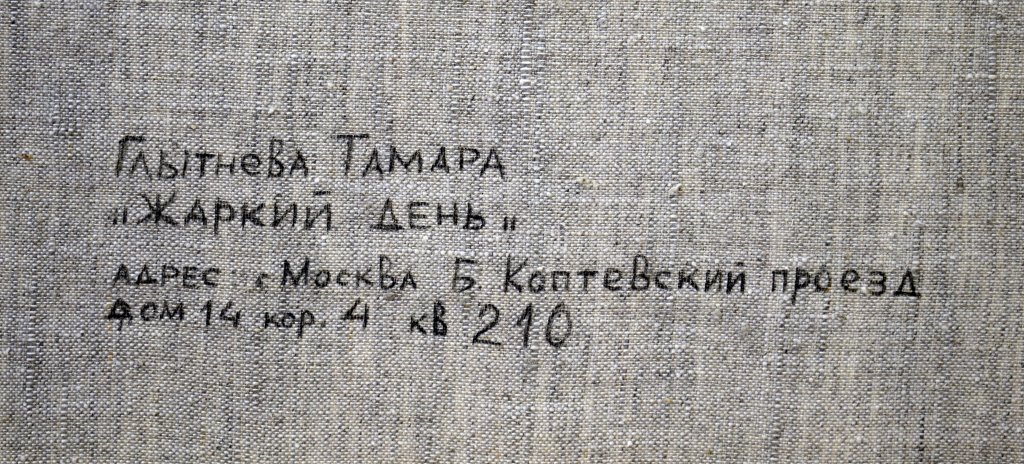 Глытнева Тамара
„Жаркий день„
адрес: г Москва Б. Коптевский проезд
дом 14 кор. 4 кв 210